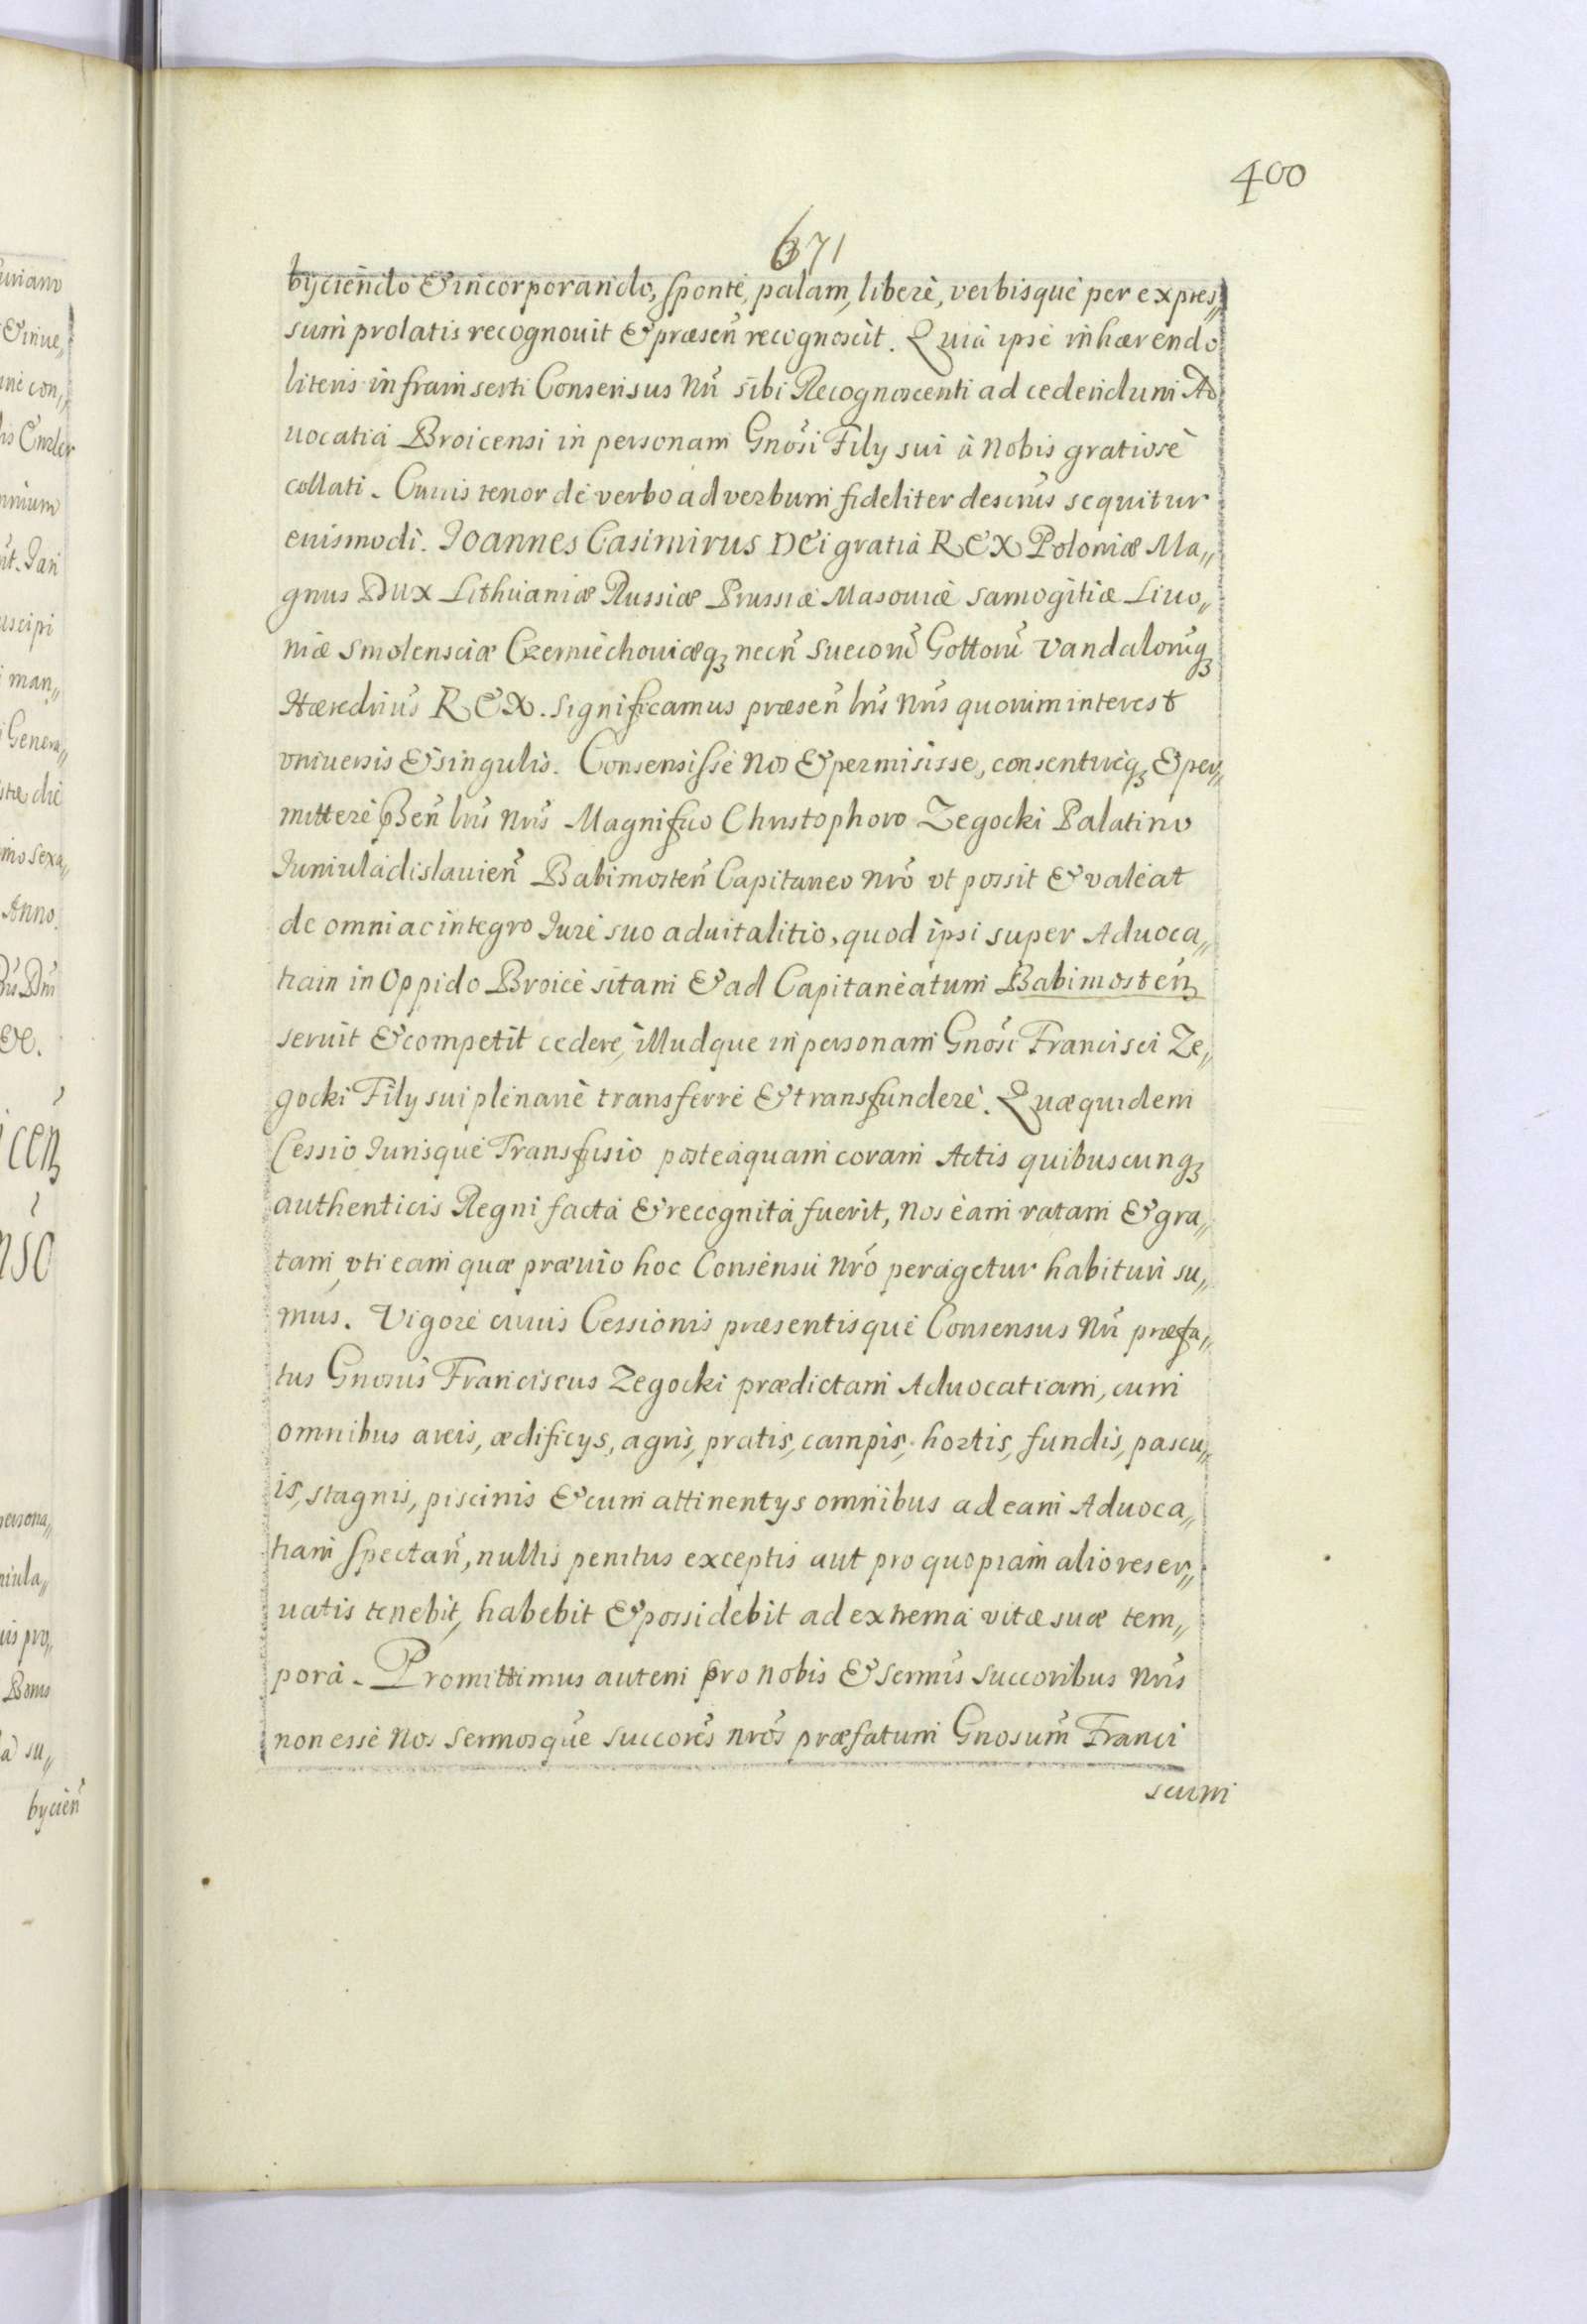 400
671
byciendo & incorporando, sponte, palam, liberè, verbisque per expres„
sum prolatis recognouit & præsen̄ recognoscit. Quia ipse inhærendo
literis infrainserti Consensus nrī sibi Recognoscenti ad cedendum Ad
uocatiâ Broicensi in personam Gnosi Fily sui à nobis gratiosè
collati. Cuius tenor de verbo ad verbum fideliter descrus sequitur
eiusmodi. Joannes Casimirus DEi gratiâ REX Poloniæ Ma„
gnus Dux Lithuaniæ Russiæ Prussiæ Masouiæ Samogitiæ Liuo„
niæ Smolensciæ Czerniechouiæq; necn̄ Suecorū Gottorū Vandalorūq;
Hæredrius REX. Significamus præsen̄ lris nris quorum interest
vniuersis & singulis. Consensisse nos & permisisse, consentireq; & per„
mittere pn̄ lris nris Magnifico Christophoro Zegocki Palatino
Juniuladislauien̄ Babimosten̄ Capitaneo nrō vt possit & valeat
de omni ac integro Jure suo aduitalitio, quod ipsi super Aduoca„
tiam in Oppido Broice sitam & ad Capitaneatum Babimosten
seruit & competit cedere, illudque in personam Gnosi Francisci Ze„
gocki Fily sui plenariè transferre & transfundere. Quæquidem
Cessio Jurisque Transfusio posteaquam coram Actis quibuscunq;
authenticis Regni facta & recognita fuerit, nos eam ratam & gra„
tam, vti eam quæ præuio hoc Consensu nrō peragetur habituri su„
mus. Vigore cuius Cessionis præsentisque Consensus nrī præfa„
tus Gnosus Franciscus Zegocki prædictam Aduocatiam, cum
omnibus areis, ædificys, agris, pratis, campis, hortis, fundis, pascu„
is, stagnis, piscinis & cum attinentys omnibus ad eam Aduoca„
tiam spectan̄, nullis penitus exceptis aut pro quopiam alio reser„
uatis tenebit, habebit & possidebit ad extrema vitæ suæ tem„
pora. Promittimus autem pro nobis & Sermis Succoribus nris
non esse nos Sermosque Succores nros præfatum Gnosum Franci
scum